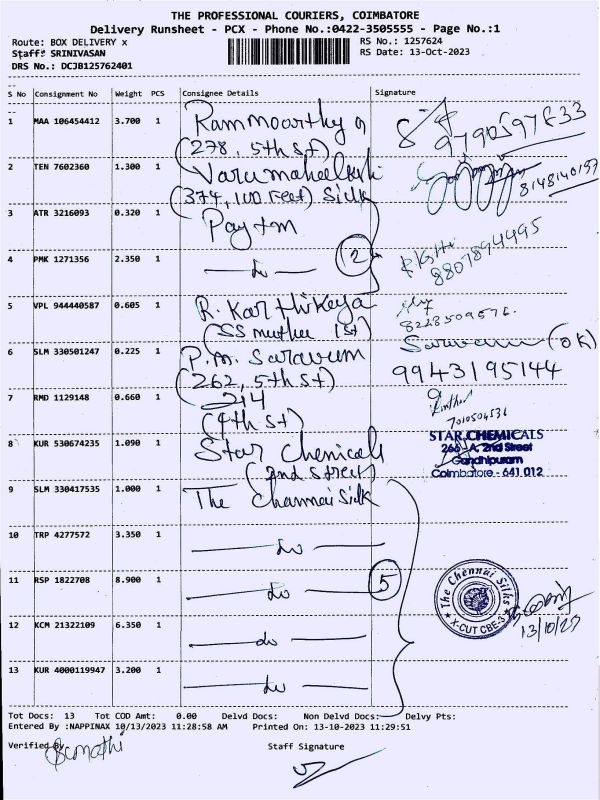 THE PROFESSIONAL COURIERS, COIMBATORE
Delivery Runsheet - PCX - Phone No.:0422-3505555 - Page No.:1
Route: BOX DELIVERY x RS No.: 1257624
Staff: SRINIVASAN RS Date: 13-Oct-2023
DRS No.: DCJB125762401
S No Consignment No Weight PCS Consignee Details Signature
1 MAA 106454412 3.700 1 Rammoorthy
(278, 5th St) 9790597633
2 TEN 7602360 1.300 1
(374, 100 Feet) Silk 8148140197
3 ATR 3216093 0.320 1 Paytm
4 PMK 1271356 2.350 1 — Do — 2 8807894495
5 VPL 944440587 0.605 1 R. Karthikeya
(SS muthu 1st) 8228509576.
6 SLM 330501247 0.225 1 P.M. Saravum (OK)
(262, 5th St) 9943195144
7 RMD 1129148 0.660 1 214
(4th St) 7010504536
8 KUR 530674235 1.090 1 Star Chemicals
(2nd Street)
STAR CHEMICALS
266-A, 2nd Street
Gandhipuram
Coimbatore - 641 012
9 SLM 330417535 1.000 1 The Channai Silk
10 TRP 4277572 3.350 1 — Do —
11 RSP 1822708 8.900 1 — Do — 5
The Chennai Silks
X-CUT CBE-3
12 KCM 21322109 6.350 1 — Do — 13/10/23
13 KUR 4000119947 3.200 1 — Do —
Tot Docs: 13 Tot COD Amt: 0.00 Delvd Docs: Non Delvd Docs: Delvy Pts:
Entered By :NAPPINAX 10/13/2023 11:28:58 AM Printed On: 13-10-2023 11:29:51
Verified By Staff Signature